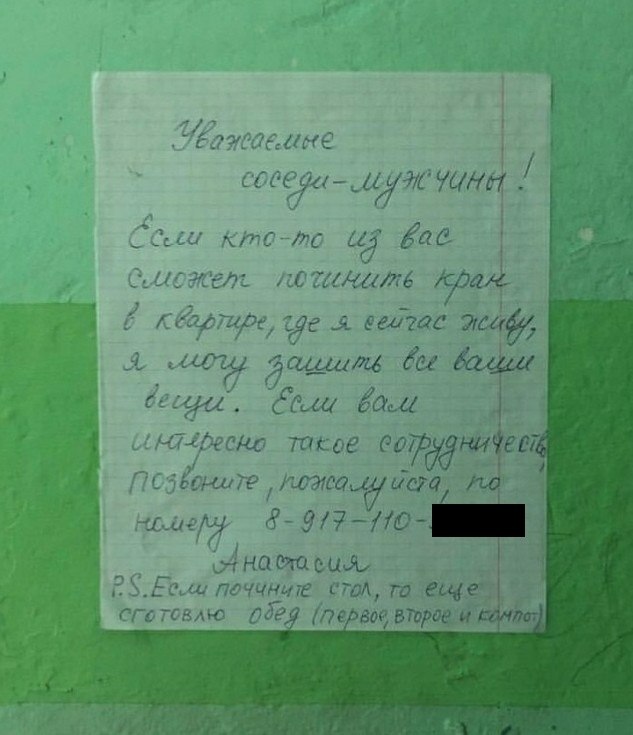 Уважаемые
соседи-мужчины!
Если кто-то из вас
сможет починить кран
в квартире, где я сейчас живу,
я могу зашить все ваши
вещи. Если вам
интересно такое сотрудничество,
позвоните, пожалуйста, по
номеру 8-917-110-
Анастасия
P.S. Если почините стол, то еще
сготовлю обед (первое, второе и компот)